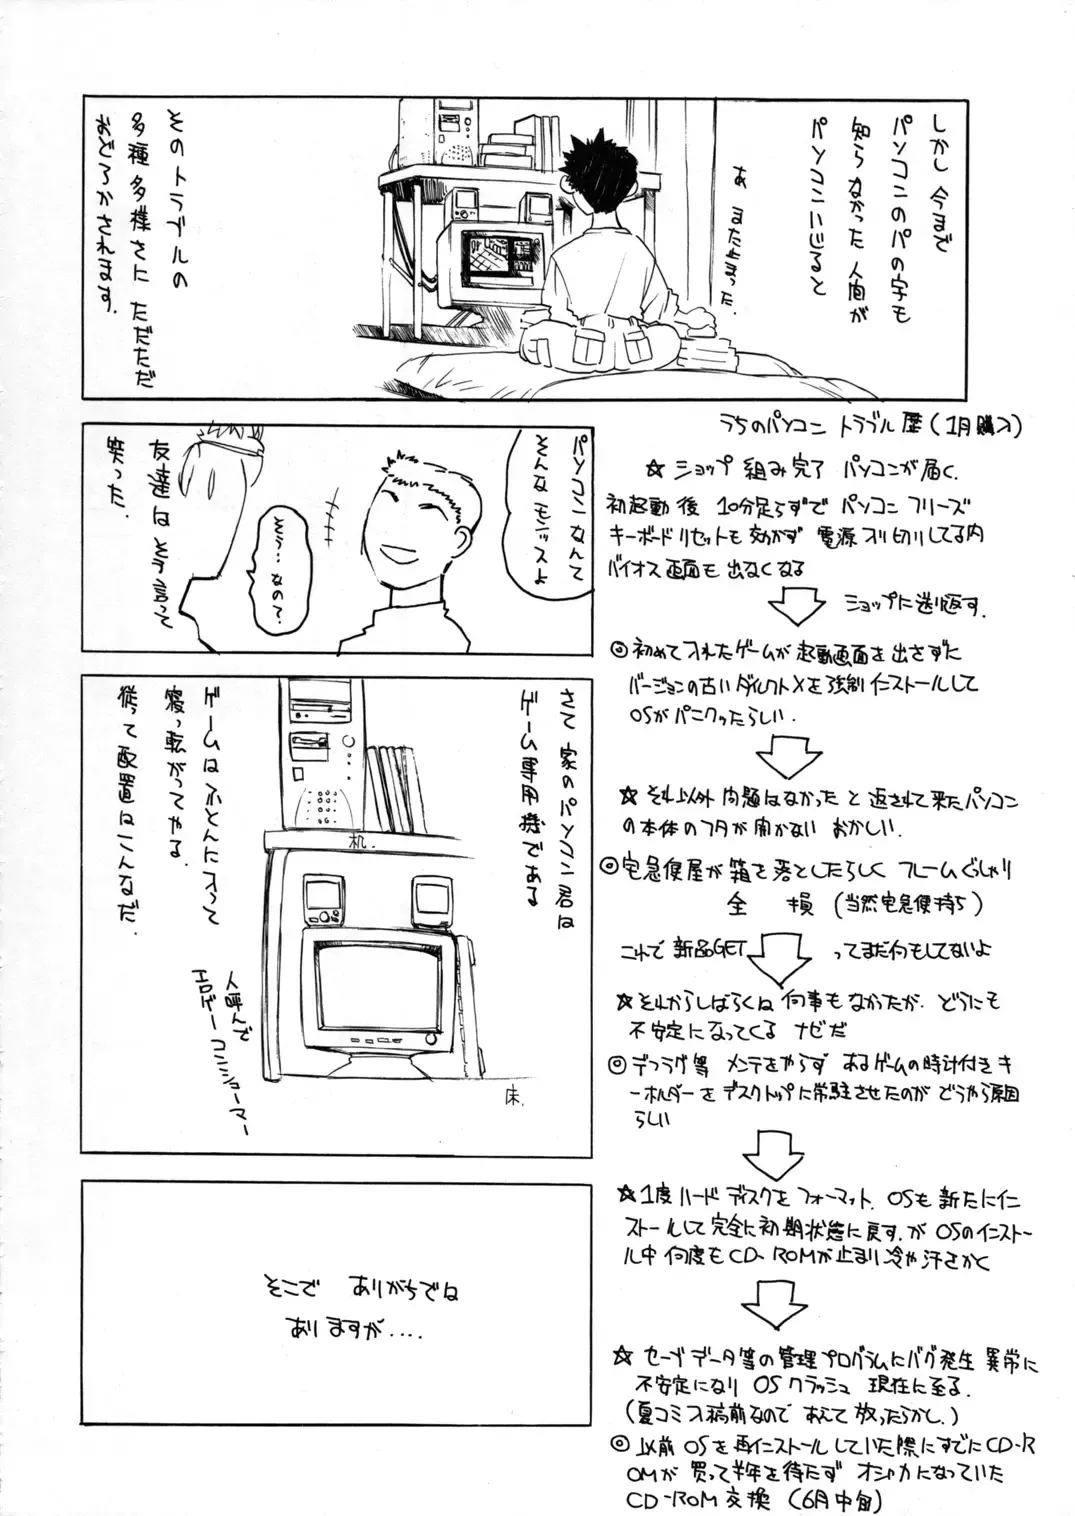 しかし 今まで
パソコンのパの字も
知らなかった 人間が
パソコンいじると
あ また止まった.
そのトラブルの
多種多様さに ただただ
おどろかされます.
パソコンなんて
そんなモンッスよ
そう…なの?
友達は そう言って
笑った.
さて 家のパソコン君は
ゲーム専用機である
机.
ゲームは ふとんに入って
寝っ転がってやる.
従って配置はこんなだ.
人呼んで
エロゲーコンショーマー
床.
そこで ありがちでは
ありますが....
うちのパソコン トラブル歴(1月購入)
☆ ショップ 組み完了 パソコンが届く.
初起動後 10分足らずで パソコン フリーズ
キーボードリセットも効かず 電源入り切りしてる内
バイオス画面も 出なくなる
ショップに送り返す.
◎ 初めて入れたゲームが 起動画面を出さずに
バージョンの古いダイレクトXを強制インストールして
OSがパニクったらしい.
☆ それ以外 問題はなかった と返されて来たパソコン
の本体のフタが開かない おかしい.
◎ 宅急便屋が 箱を落としたらしく フレームぐしゃり
全 損 (当然宅急便持ち)
これで 新品GET
ってまだ何もしてないよ
☆ それからしばらくは 何事もなかったが. どうにも
不安定になってくる ナゼだ
◎ デフラグ等 メンテをやらず あるゲームの時計付きキ
ーホルダーをデスクトップに常駐させたのが どうやら原因
らしい
☆ 1度ハードディスクをフォーマット. OSも新たにイン
ストールして完全に初期状態に戻す. が OSのインストー
ル中 何度もCD-ROMが止まり冷や汗をかく
☆ セーブデータ等の管理プログラムにバグ発生 異常に
不安定になり OSクラッシュ 現在に至る.
(夏コミ入稿前なので あえて 放ったらかし.)
◎ 以前 OSを再インストールしていた際にすでにCD-R
OMが 買って半年を待たず オシャカになっていた
CD-ROM交換 (6月中旬)